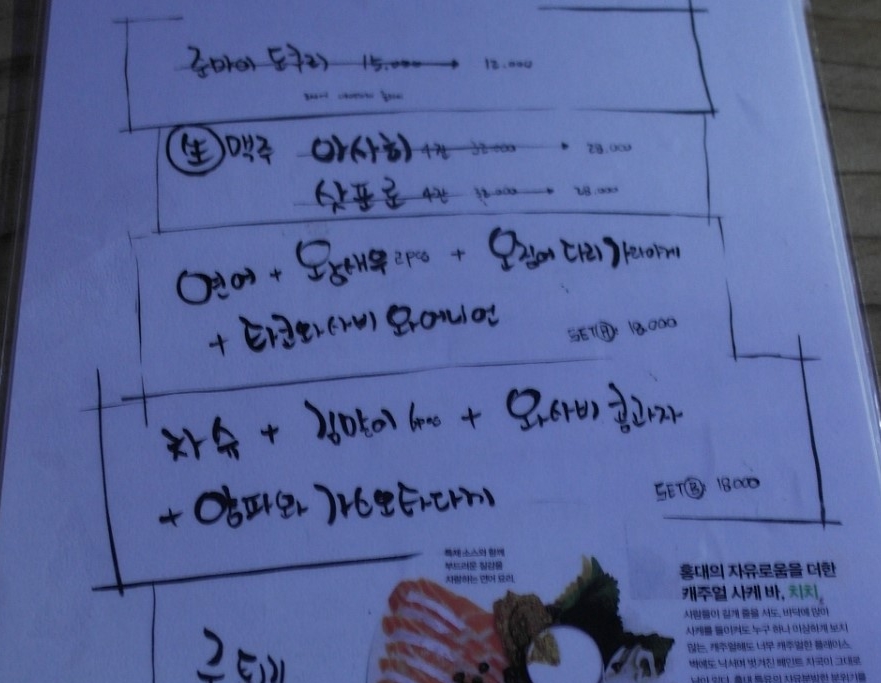 준마이 도쿠리 15.000 → 12.000
生 맥주 아사히 4잔 32.000 → 28.000
삿포로 4잔 32.000 → 28.000
연어 + 왕새우 2pcs + 오징어 다리 가라아게
+ 타코와사비 와 어니언
SET A 18.000
차슈 + 김말이 6pcs + 와사비 콩과자
+ 양파와 가쓰오타다끼
SET B 18000
특제 소스와 함께
부드러운 질감을
자랑하는 연어 요리.
홍대의 자유로움을 더한
캐주얼 사케 바, 치치.
사람들이 길게 줄을 서도, 바닥에 앉아
사케를 들이켜도 누구 하나 이상하게 보지
않는, 캐주얼해도 너무 캐주얼한 플레이스.
벽에도 낙서며 벗겨진 페인트 자국이 그대로